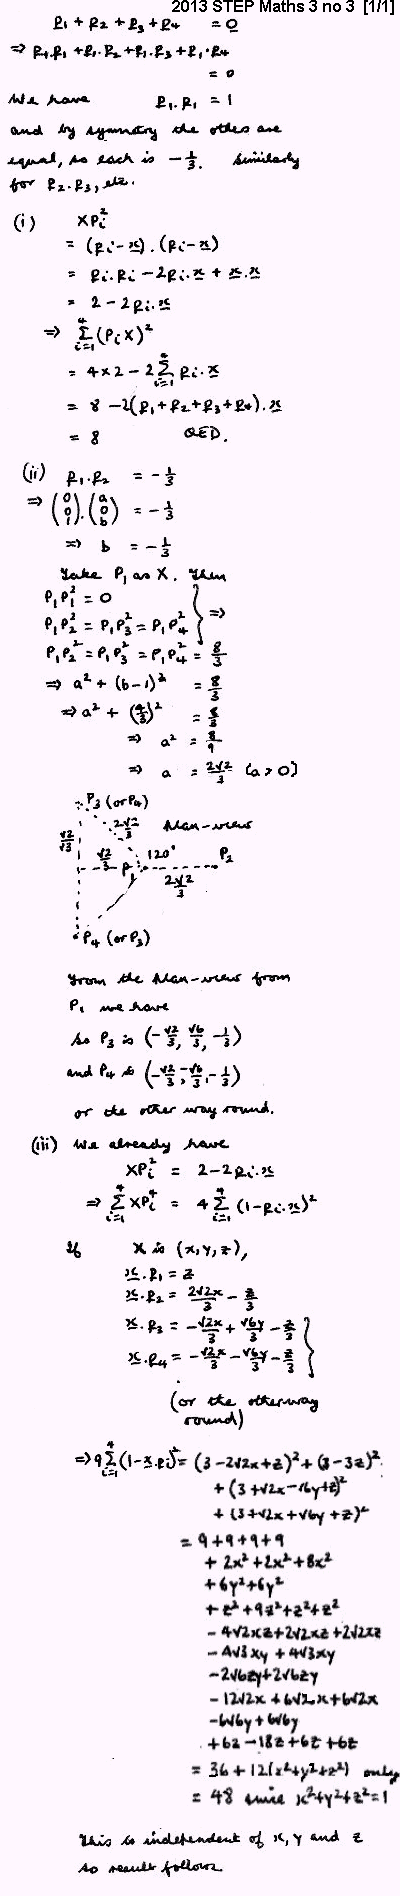 2013 STEP Maths 3 no 3 [1/1]
p₁ + p₂ + p₃ + p₄ = 0
⇒ p₁.p₁ + p₁.p₂ + p₁.p₃ + p₁.p₄
= 0
We have p₁.p₁ = 1
and by symmetry the others are
equal, so each is -1/3. Similarly
for p₂.p₃, etc.
(i) XPᵢ²
= (pᵢ - x).(pᵢ - x)
= pᵢ.pᵢ - 2pᵢ.x + x.x
= 2 - 2pᵢ.x
⇒ ∑ᵢ₌₁⁴ (PᵢX)²
= 4×2 - 2∑ᵢ₌₁⁴ pᵢ.x
= 8 - 2(p₁ + p₂ + p₃ + p₄).x
= 8 QED.
(ii) p₁.p₂ = -1/3
⇒ (0 0 1).(a 0 b) = -1/3
⇒ b = -1/3
Take P₁ as X. Then
P₁P₁² = 0
P₁P₂² = P₁P₃² = P₁P₄² } ⇒
P₁P₂² = P₁P₃² = P₁P₄² = 8/3
⇒ a² + (b-1)² = 8/3
⇒ a² + (4/3)² = 8/3
⇒ a² = 8/9
⇒ a = 2√2/3 (a>0)
P₃ (or P₄)
2√2/3 Plan-view
√2/√3 √2/3 P₁ 120° P₂
2√2/3
P₄ (or P₃)
From the plan-view from
P₁ we have
so P₃ is (-√2/3, √6/3, -1/3)
and P₄ is (-√2/3, -√6/3, -1/3)
or the other way round.
(iii) We already have
XPᵢ² = 2 - 2pᵢ.x
⇒ ∑ᵢ₌₁⁴ XPᵢ⁴ = 4∑ᵢ₌₁⁴ (1 - pᵢ.x)²
If X is (x, y, z),
x.p₁ = z
x.p₂ = 2√2x/3 - z/3
x.p₃ = -√2x/3 + √6y/3 - z/3
x.p₄ = -√2x/3 - √6y/3 - z/3 }
(or the other way
round)
⇒ 9∑ᵢ₌₁⁴ (1 - x.pᵢ)² = (3 - 2√2x + z)² + (3 - 3z)²
+ (3 + √2x - √6y + z)²
+ (3 + √2x + √6y + z)²
= 9+9+9+9
+ 2x² + 2x² + 8x²
+ 6y² + 6y²
+ z² + 9z² + z² + z²
- 4√2xz + 2√2xz + 2√2xz
- 4√3xy + 4√3xy
- 2√6zy + 2√6zy
- 12√2x + 6√2x + 6√2x
- 6√6y + 6√6y
+ 6z - 18z + 6z + 6z
= 36 + 12(x²+y²+z²) only
= 48 since x²+y²+z²=1
This is independent of x, y and z
so result follows